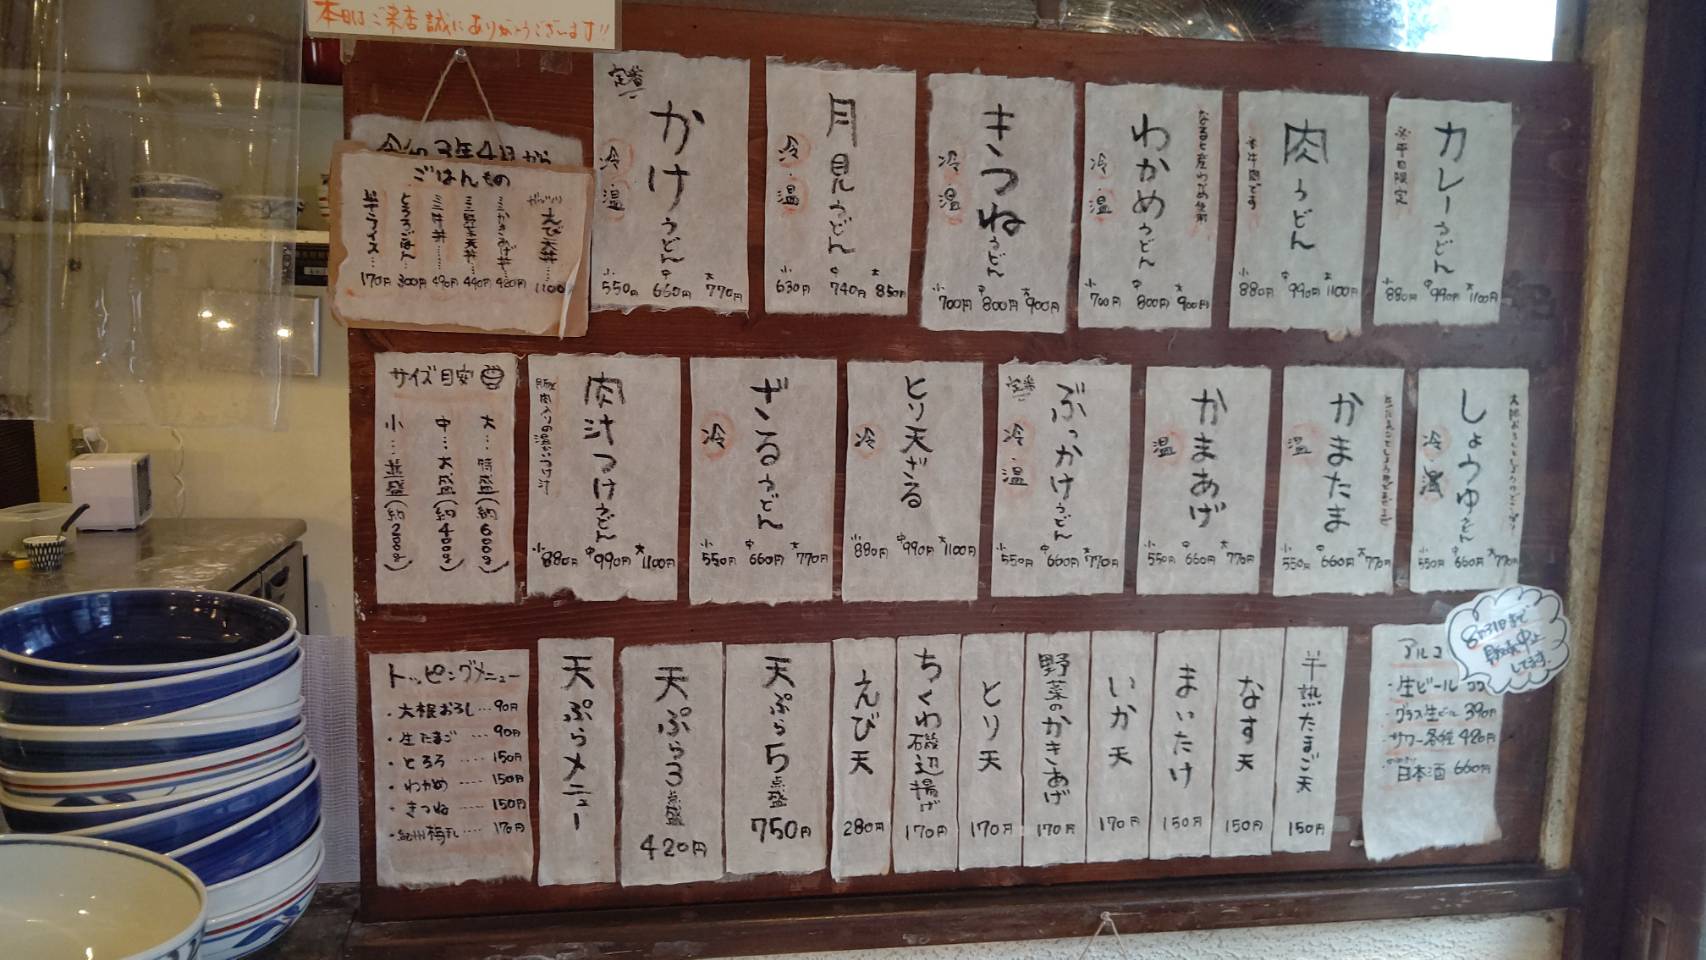 本日はご来店誠にありがとうございます!!
令和3年4月から
ごはんもの
えび天丼 1100
ミニかきあげ丼……420円
ミニ野菜天丼……440円
ミニ丼……490円
とろろごはん……300円
半ライス……170円
定番
かけうどん
冷・温
小 550円 中 660円 大 770円
月見うどん
冷・温
小 630円 中 740円 大 850円
きつねうどん
冷・温
小 700円 中 800円 大 900円
わかめうどん
なると産わかめ使用
冷・温
小 700円 中 800円 大 900円
肉うどん
※牛肉です
小 880円 中 990円 大 1100円
カレーうどん
※平日限定
小 880円 中 990円 大 1100円
サイズ目安
大…特盛(約600g)
中…大盛(約400g)
小…並盛(約200g)
肉汁つけうどん
豚肉入りの温かいつけ汁
小 880円 中 990円 大 1100円
ざるうどん
冷
小 550円 中 660円 大 770円
とり天ざる
冷
小 880円 中 990円 大 1100円
定番
ぶっかけうどん
冷・温
小 550円 中 660円 大 770円
かまあげ
温
小 550円 中 660円 大 770円
かまたま
温
小 550円 中 660円 大 770円
しょうゆうどん
冷・温
小 550円 中 660円 大 770円
トッピングメニュー
・大根おろし…90円
・生たまご…90円
・とろろ……150円
・わかめ……150円
・きつね……150円
・紀州梅干し……170円
天ぷらメニュー
天ぷら3点盛
420円
天ぷら5点盛
750円
えび天
280円
ちくわ磯辺揚げ
170円
とり天
170円
野菜のかきあげ
170円
いか天
170円
まいたけ
150円
なす天
150円
半熟たまご天
150円
アルコ
・生ビール
・グラス生ビール 390円
・サワー各種 420円
・日本酒 660円
8月31日まで
販売中止
してます。